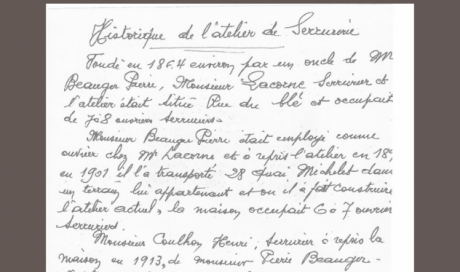 Historique de l'atelier de Serrurerie
Fondé en 1864 environ par un oncle de Mr
Beauger Pierre, Monsieur Lacorne Serrurier et
l'atelier était situé Rue du blé et occupait
de 7 à 8 ouvriers serruriers.
Monsieur Beauger Pierre était employé comme
ouvrier chez Mr Lacorne et à repris l'atelier en 18
en 1901 il l'a transporté 28 quai Michelet dans
un terrain lui appartenant et ou il a fait construire
l'atelier actuel, la maison occupait 6 à 7 ouvriers
serruriers.
Monsieur Coulhon Henri, serrurier à repris la
maison en 1913, de monsieur Pierre Beauger-